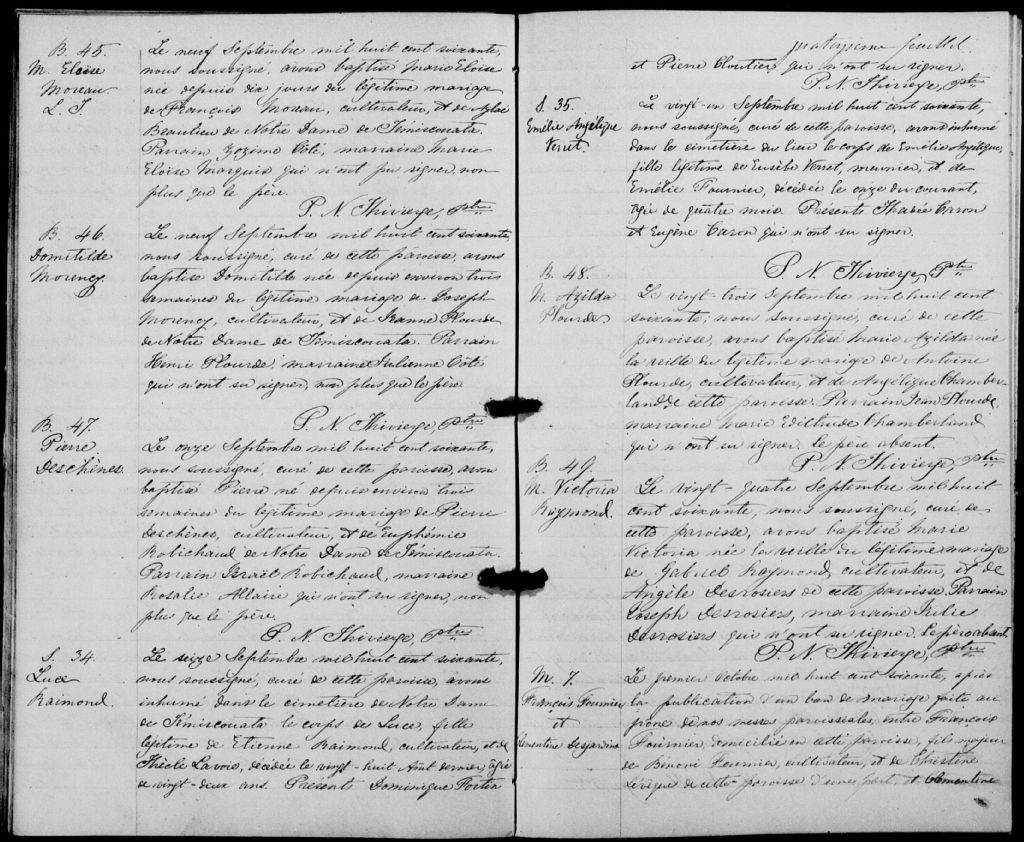 B. 45.
M. Eloïse
Moreau
L. J.
Le neuf Septembre mil huit cent soixante,
nous soussigné, avons baptisé Marie Eloïse
née depuis dix jours du légitime mariage
de François Moreau, cultivateur, et de Aglaé
Beaulieu de Notre Dame de Témiscouata.
Parrain Zozime Côté, marraine Marie
Eloïse Marquis qui n'ont pu signer, non
plus que le père.
P. N. Thivierge, Ptre
B. 46.
Domitilde
Morency.
Le neuf Septembre mil huit cent soixante,
nous soussigné, curé de cette paroisse, avons
baptisé Domitilde née depuis environ trois
semaines du légitime mariage de Joseph
Morency, cultivateur, et de Jeanne Plourde
de Notre Dame de Temiscouata. Parrain
Henri Plourde, marraine Julienne Côté
qui n'ont su signer, non plus que le père.
P. N. Thivierge, Ptre
B. 47.
Pierre
Deschènes.
Le onze Septembre mil huit cent soixante,
nous soussigné, curé de cette paroisse, avons
baptisé Pierre né depuis environ trois
semaines du légitime mariage de Pierre
Deschènes, cultivateur, et de Euphémie
Robichaud de Notre Dame de Temiscouata.
Parrain Israël Robichaud, marraine
Rosalie Allaire qui n'ont su signer, non
plus que le père.
P. N. Thivierge, Ptre
S. 34.
Luce
Raimond.
Le seize Septembre mil huit cent soixante,
nous soussigné, curé de cette paroisse, avons
inhumé dans le cimetière de Notre Dame
de Témiscouata le corps de Luce, fille
légitime de Etienne Raimond, cultivateur, et de
Thècle Lavoie, décédée le vingt-huit Août dernier, âgée
de vingt-deux ans. Présents Dominique Fortin
feuillet.
et Pierre Cloutier qui n'ont su signer.
P. N. Thivierge, Ptre
S. 35.
Emélie Angélique
Verret.
Le vingt-un Septembre mil huit cent soixante,
nous soussigné, curé de cette paroisse, avons inhumé
dans le cimetière du lieu le corps de Emélie Angélique,
fille légitime de Eusèbe Verret, meunier, et de
Emélie Fournier, décédée le onze du courant,
âgée de quatre mois. Présents Thadée Caron
et Eugène Caron qui n'ont su signer.
P. N. Thivierge, Ptre
B. 48.
M. Azilda
Plourde.
Le vingt-trois Septembre mil huit cent
soixante, nous soussigné, curé de cette
paroisse, avons baptisé Marie Azilda née
la veille du légitime mariage de Antoine
Plourde, cultivateur, et de Angélique Chamber-
land de cette paroisse. Parrain Jean Plourde,
marraine Marie Edithude Chamberland
qui n'ont su signer, le père absent.
P. N. Thivierge, Ptre
B. 49.
M. Victoria
Raymond.
Le vingt-quatre Septembre mil huit
cent soixante, nous soussigné, curé de
cette paroisse, avons baptisé Marie
Victoria née la veille du légitime mariage
de Gabriel Raymond, cultivateur, et de
Angèle Desrosiers de cette paroisse. Parrain
Joseph Desrosiers, marraine Julie
Desrosiers qui n'ont su signer. Le père absent.
P. N. Thivierge, Ptre
M. 7.
François Fournier
et
Clementine Desjardins
Le premier Octobre mil huit cent soixante, après
la publication d'un ban de mariage faite au
prône de nos messes paroissiales, entre François
Fournier, domicilié en cette paroisse, fils majeur
de Benoni Fournier, cultivateur, et de Christine
Levêque de cette paroisse d'une part, et Clementine